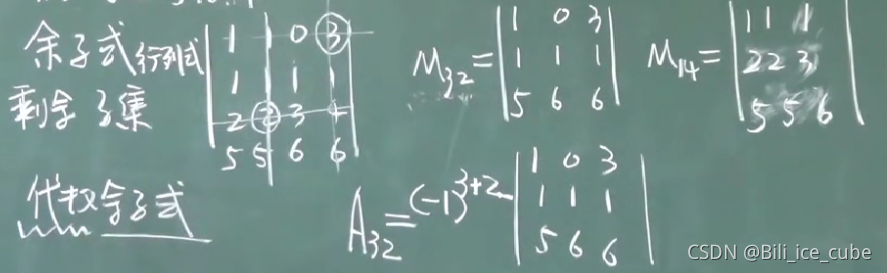 余子式 行列式 | 1 1 0 3 |
| 1 1 1 1 |
剩余子集 | 2 2 3 4 |
| 5 5 6 6 |
M₃₂ = | 1 0 3 |
| 1 1 1 |
| 5 6 6 |
M₁₄ = | 1 1 1 |
| 2 2 3 |
| 5 5 6 |
代数余子式
A₃₂ = (-1)³⁺² | 1 0 3 |
| 1 1 1 |
| 5 6 6 |
CSDN @Bili_ice_cube